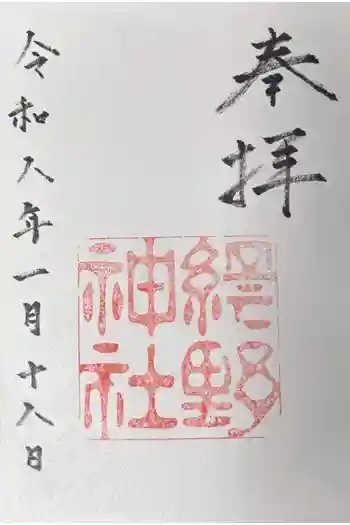 奉拝
網野
神社
令和八年一月十八日